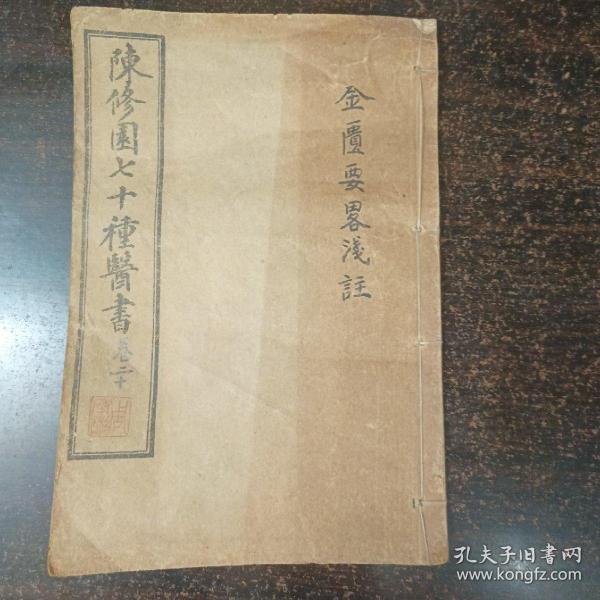 金匱要畧淺註
陳修園七十種醫書 卷二十
孔夫子旧书网
www.kongfz.com